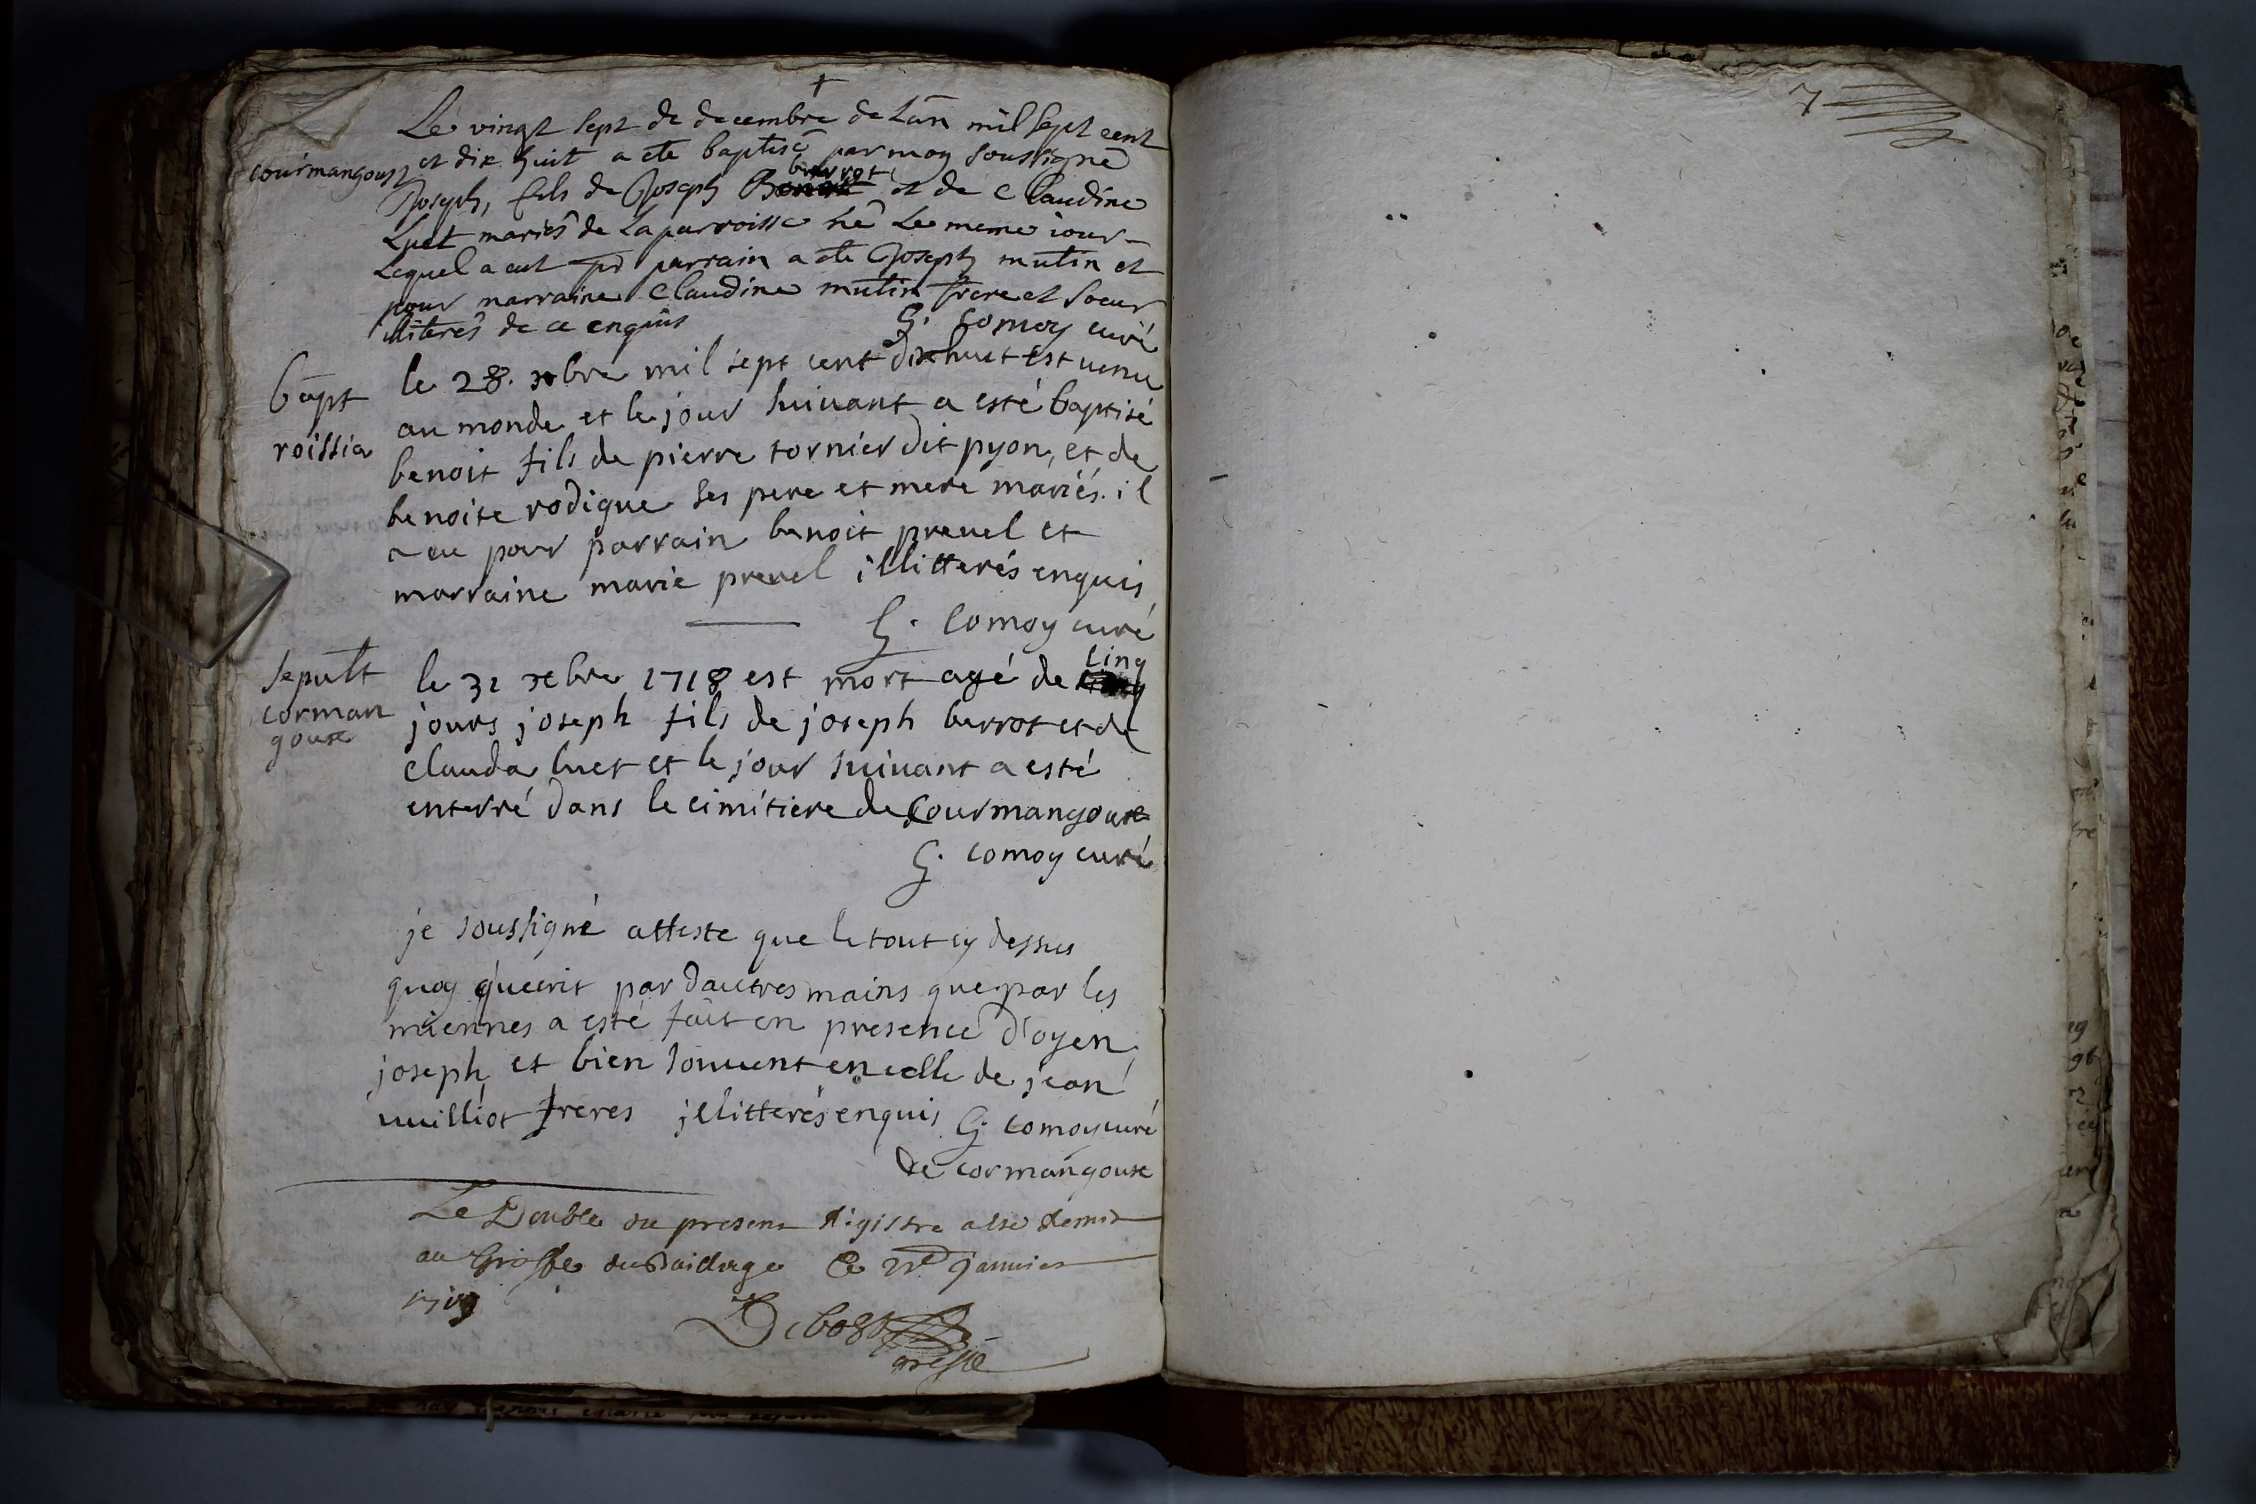 +
Le vingt sept de decembre de Lan mil sept cent
courmangoust et dix huit a ete baptisé par moy soussigné
berrot
Joseph, fils de Joseph et de Claudine
Luet mariés de La parroisse né Le meme iour
Lequel a eut pr parrain a ete Joseph mutin et
pour marraine Claudine mutin frere et soeur
illiterés de ce enquis G. Comoy curé
bapt
roissia
le 28. xbre mil sept cent dix huit est venu
au monde et le jour suivant a esté baptisé
benoit fils de pierre tornier dit pyon, et de
benoite rodigue ses pere et mere mariés. il
a eu pour parrain benoit prevel et
marraine marie prevel illitterés enquis
G. Comoy curé
sepult
corman
goux
le 31 xbre 1718 est mort agé de cinq
jours joseph fils de joseph berrot et de
clauda luet et le jour suivant a esté
enterré dans le cimitiere de Courmangoux
G. comoy curé
je soussigné atteste que le tout cy dessus
quoy qu'ecrit par d'autres mains que par les
miennes a esté fait en presence d'oyen
joseph et bien souvent en celle de jean
vuilliot freres jllitterés enquis G. comoy curé
de cormangoux
Le Double du present Régistre a esté Remis
au Greffe du Bailliage Ce janvier
1719
Debost
greffe
7